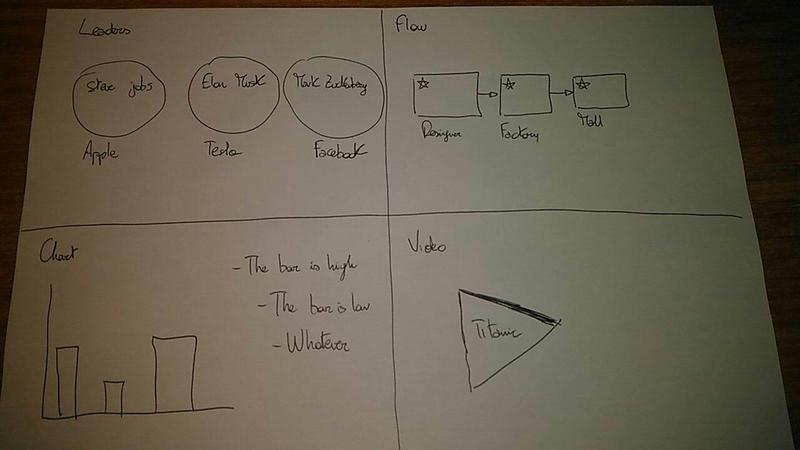 Leaders
Steve jobs
Elon Musk
Mark Zuckerberg
Apple
Tesla
Facebook
Flow
Designer
Factory
Mall
Chart
- The bar is high
- The bar is low
- Whatever
Video
Titanic